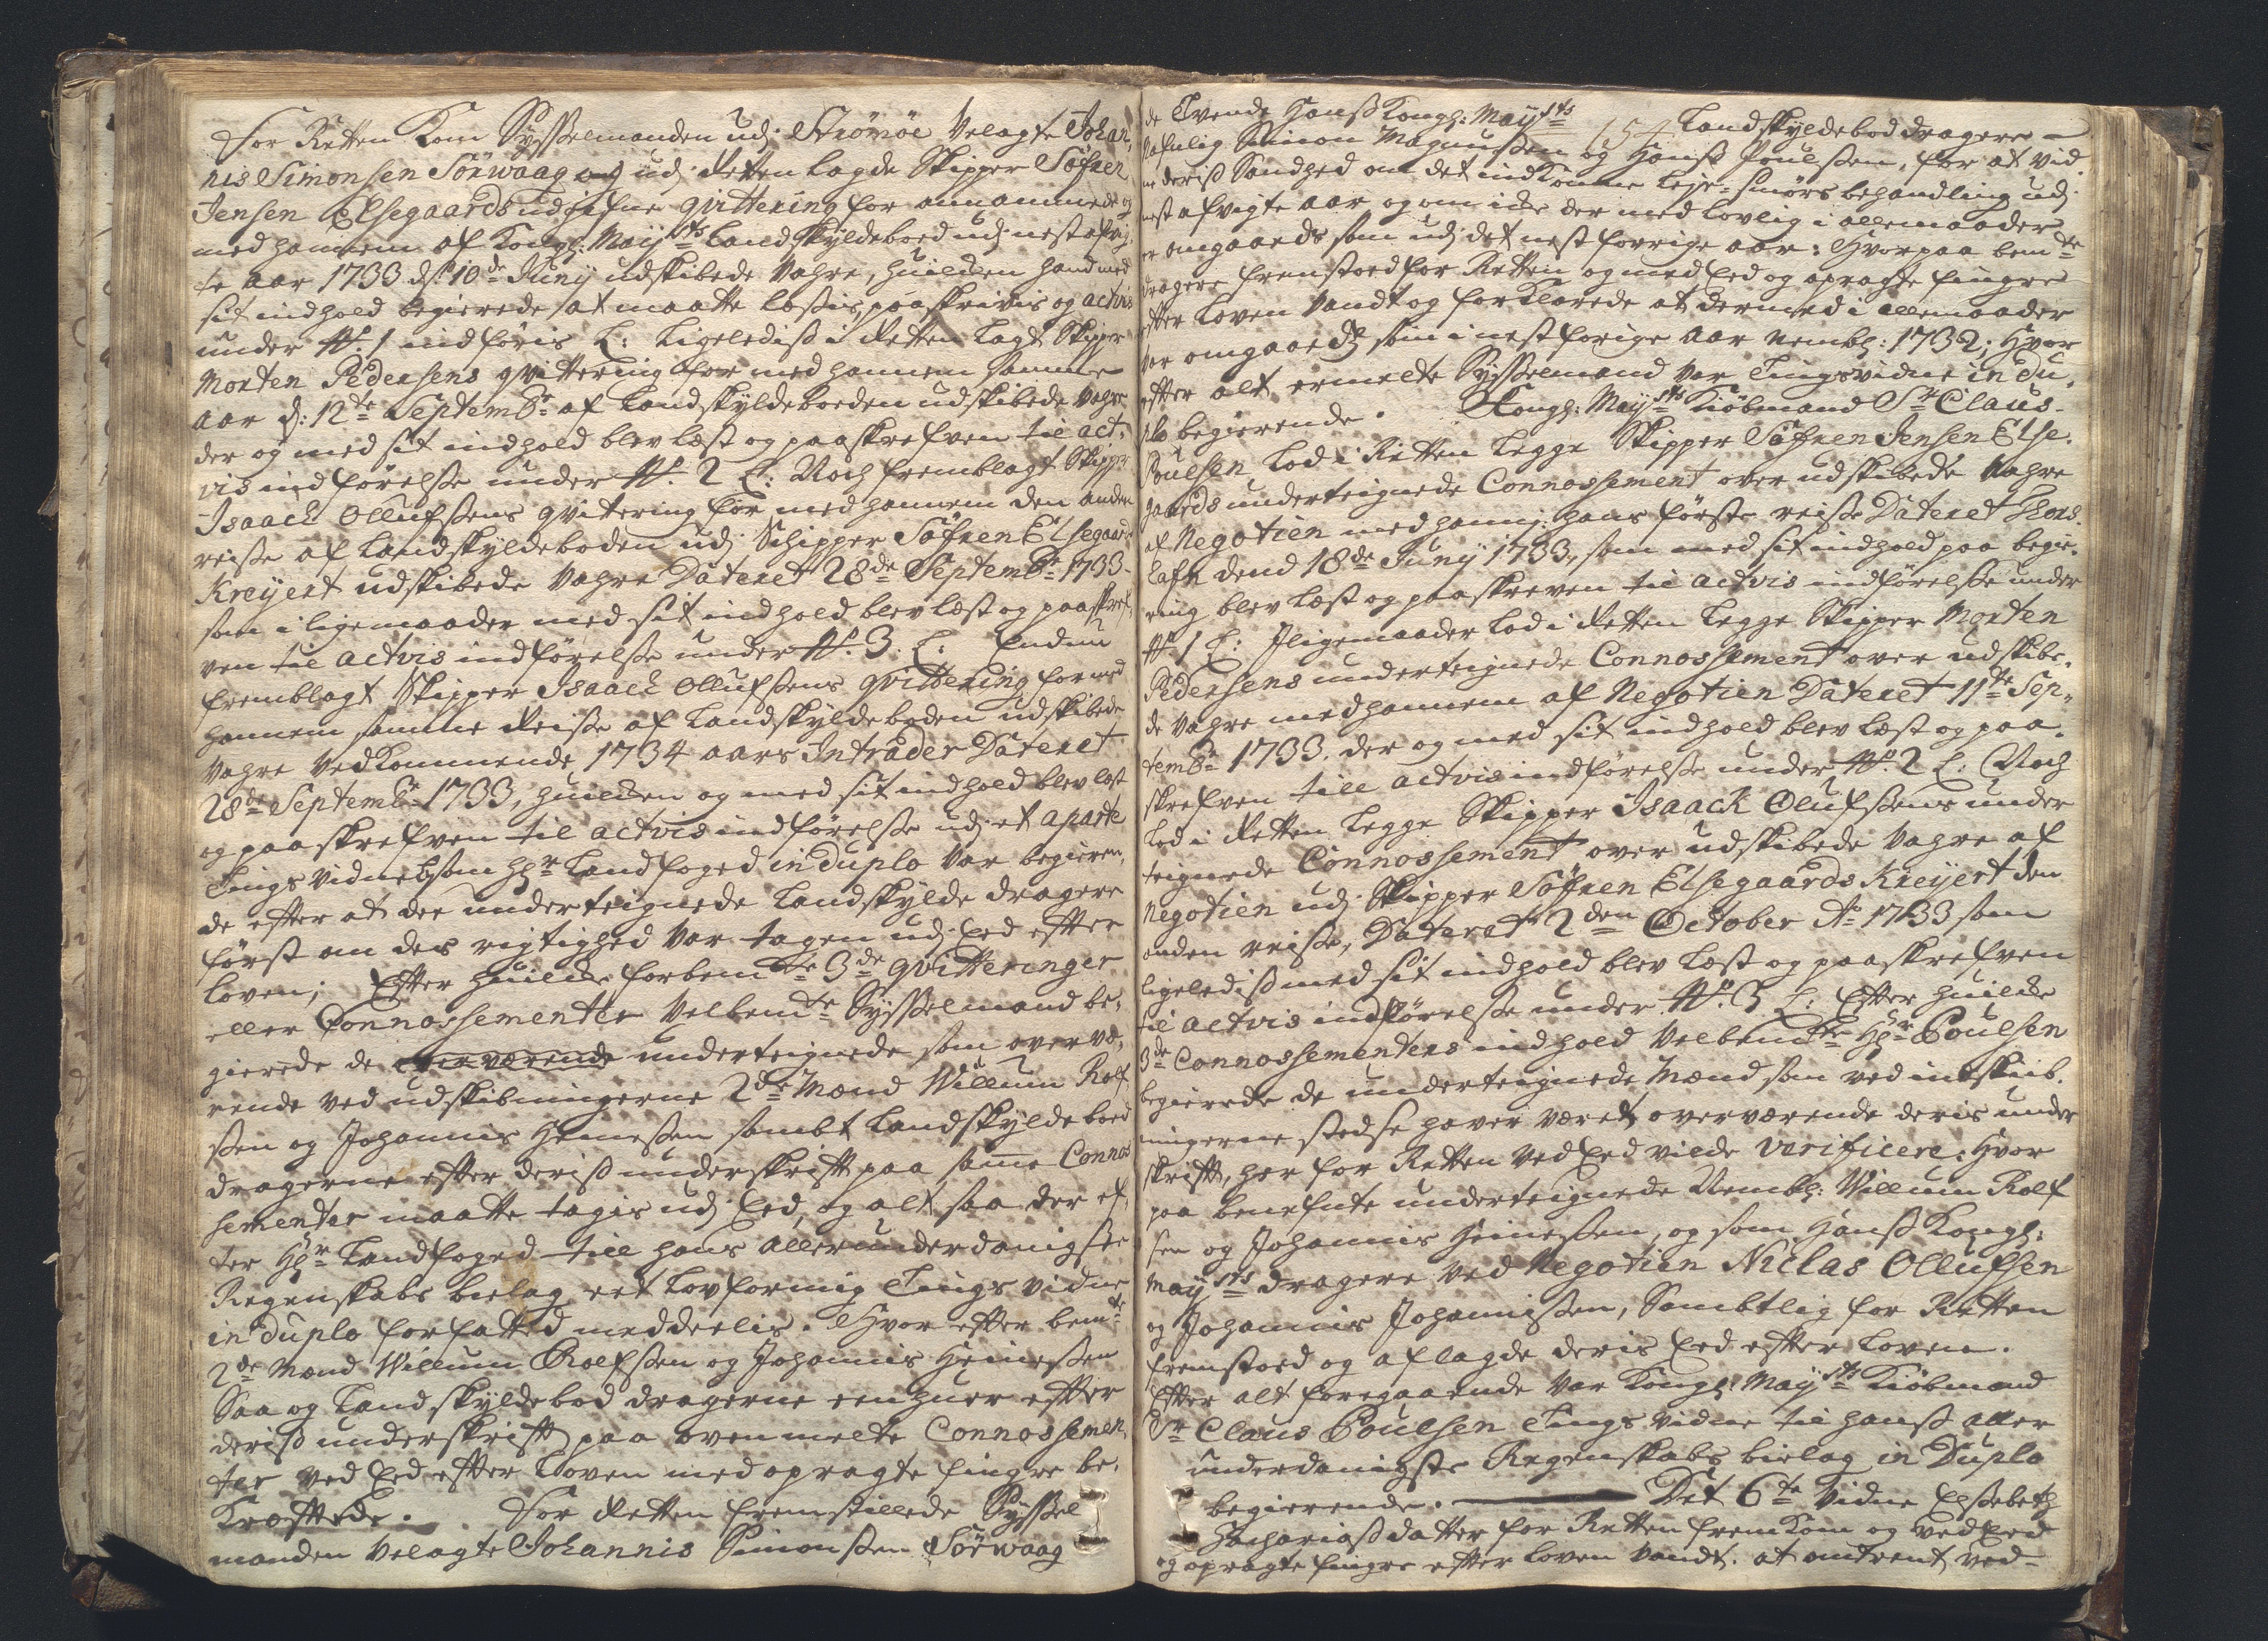 For Retten Kom Sysselmanden udj Strömöe Velagte Johan,
nis Simonsen Sörwaag og udj Retten lagde Skipper Söfren
Jensen Elsegaards udgifne qvittering for annammede og
med hannem af Kongl: Mayst:s Landskyldeboed udj nestafvig,
te aar 1733 d: 10de Juny udskibede Vahre, huilcken hand med
sit indhold begierede at maatte læsis, paaskrivis og actvis
under No. 1 indföris L: Ligeledis i Retten lagt Skipper
Morten Pedersens qvittering for med hannem samme
aar d: 12te Septembr af Landskyldeboeden udskibede Vahre
der og med sit indhold blev læst og paaskrefven til act,
vis indförelse under No. 2 L: Noch fremblagt Skipper
Isaach Ollufsens qvittering for med hannem den anden
reise af Landskyldeboden udj Schipper Söfren Elsegaards
Kreyert udskibede Vahre Dateret 28de Septembr 1733
som i ligemaader med sit indhold blev læst og paaskref,
ven til actvis indförelse under No. 3. L: Endnu
fremblagt Skipper Isaach Ollufsens qvittering for med
hannem samme Reise af Landskyldeboden udskibede
Vahre Vedkommende 1734 aars Intrader Dateret
28de Septembr 1733, huilcken og med sit indhold blev læst
og paaskrefven til actvis indförelse udj et aparte
Tings Vidne som Hr Landfoged in duplo Var begieren,
de efter at der undertegnede Landskylde dragere
först om des rigtighed Var tagen udj Eed efter
Loven; Efter huilcke forbemte 3de qvitteringer
eller Connossementer Velbemte Sysselmand be,
gierede de overværende undertegnede som overvæ,
rende ved udskibningerne 2de Mænd Willum Rolf
sen og Johannis Heinessen sambt Landskyldeboed
dragerne efter deris underskrift paa samme Connos
sementer maatte tagis udj Eed, og alt saa der ef,
ter Hr Landfoged till hans allerunderdanigste
Regenskabs bielag eet Lovformig Tings Vidne
in duplo forfatted meddeelis. Hvor efter bemte
2de Mænd Willum Rolfsen og Johannis Heinessen
Saa og Landskyldebod dragerne eenhuer efter
deris underskrift paa ovenmelte Connossemen,
ter ved Eed efter Loven med opragte fingre be,
Kræftede. For Retten fremstillede Syssel
manden Velagte Johannis Simonsen Sörwaag
de Tvende Hans Kongl: Mayst:s Landskyldebod dragere
154
Nafnlig Simon Magnussen og Hans Poulsen, for at vid
ne deris Sandhed om det indkomne Leje-Smörs behandling udj
nest afvigte aar og om icke der med lovlig i allemaader
er omgaaeds som udj det nest forrige aar: Hvorpaa bemte
dragere fremstoed for Retten og med Eed og opragte fingre
efter Loven Vandt og forklarede at dermed i allemaader
var omgaaeds som i nest forige aar nembl: 1732; Hvor
efter alt ermelte Sysselmand Var Tingsvidne in du,
plo begierende. Kongl: Mayst:s Kiöbmand Sr Claus
Poulsen Lod i Retten Legge Skipper Söfren Jensen Else,
gaards undertegnede Connossement over udskibede Vahre
af Negotien med hannem hans förste reise Dateret Thors,
hafn dend 18de Juny 1733, som med sit indhold paa begie,
ring blev læst og paaskreven til actvis indförelse under
No. 1 L: Iligemaader Lod i Retten Legge Skipper Morten
Pedersens undertegnede Connossement over udskibe,
de Vahre med hannem af Negotien Dateret 11te Sep,
tembr 1733. der og med sit indhold blev læst og paa,
skrefven till actvis indförelse under No. 2 L: Noch
Lod i Retten Legge Skipper Isaack Olufsens under
tegnede Connossement over udskibede Vahre af
Negotien udj Skipper Söfren Elsegaards Kreyert den
anden reise, Dateret 2den October Ao 1733 som
ligeledis med sit indhold blev læst og paaskrefven
til actvis indförelse under No. 3 L: Efter huilcke
3de Connossementers indhold Velbemte Hr Poulsen
begierede de undertegnede Mænd som ved indskib,
ningerne stedse haver været overværende deris under
skrift, her for Retten Ved Eed vilde verificere: Hvor
paa benefnte undertegnede Nembl: Willum Rolf
sen og Johannis Heinessen, og som Hans Kongl:
Mayst:s dragere ved Negotien Niclas Ollufsen
og Johannis Johannissen, Sambtlig for Retten
fremstoed og aflagde deris Eed efter Loven.
Efter alt foregaaende Var Kongl: Mayst:s Kiöbmand
Sr Claus Poulsen Tings Vidne til hans aller
underdanigste Regenskabs bielag in Duplo
begierende. Det 6te Vidne Elsebeth
Zachariasdatter for Retten fremkom og ved Eed
og opragte fingre efter Loven Vandt. at omtrent ved-